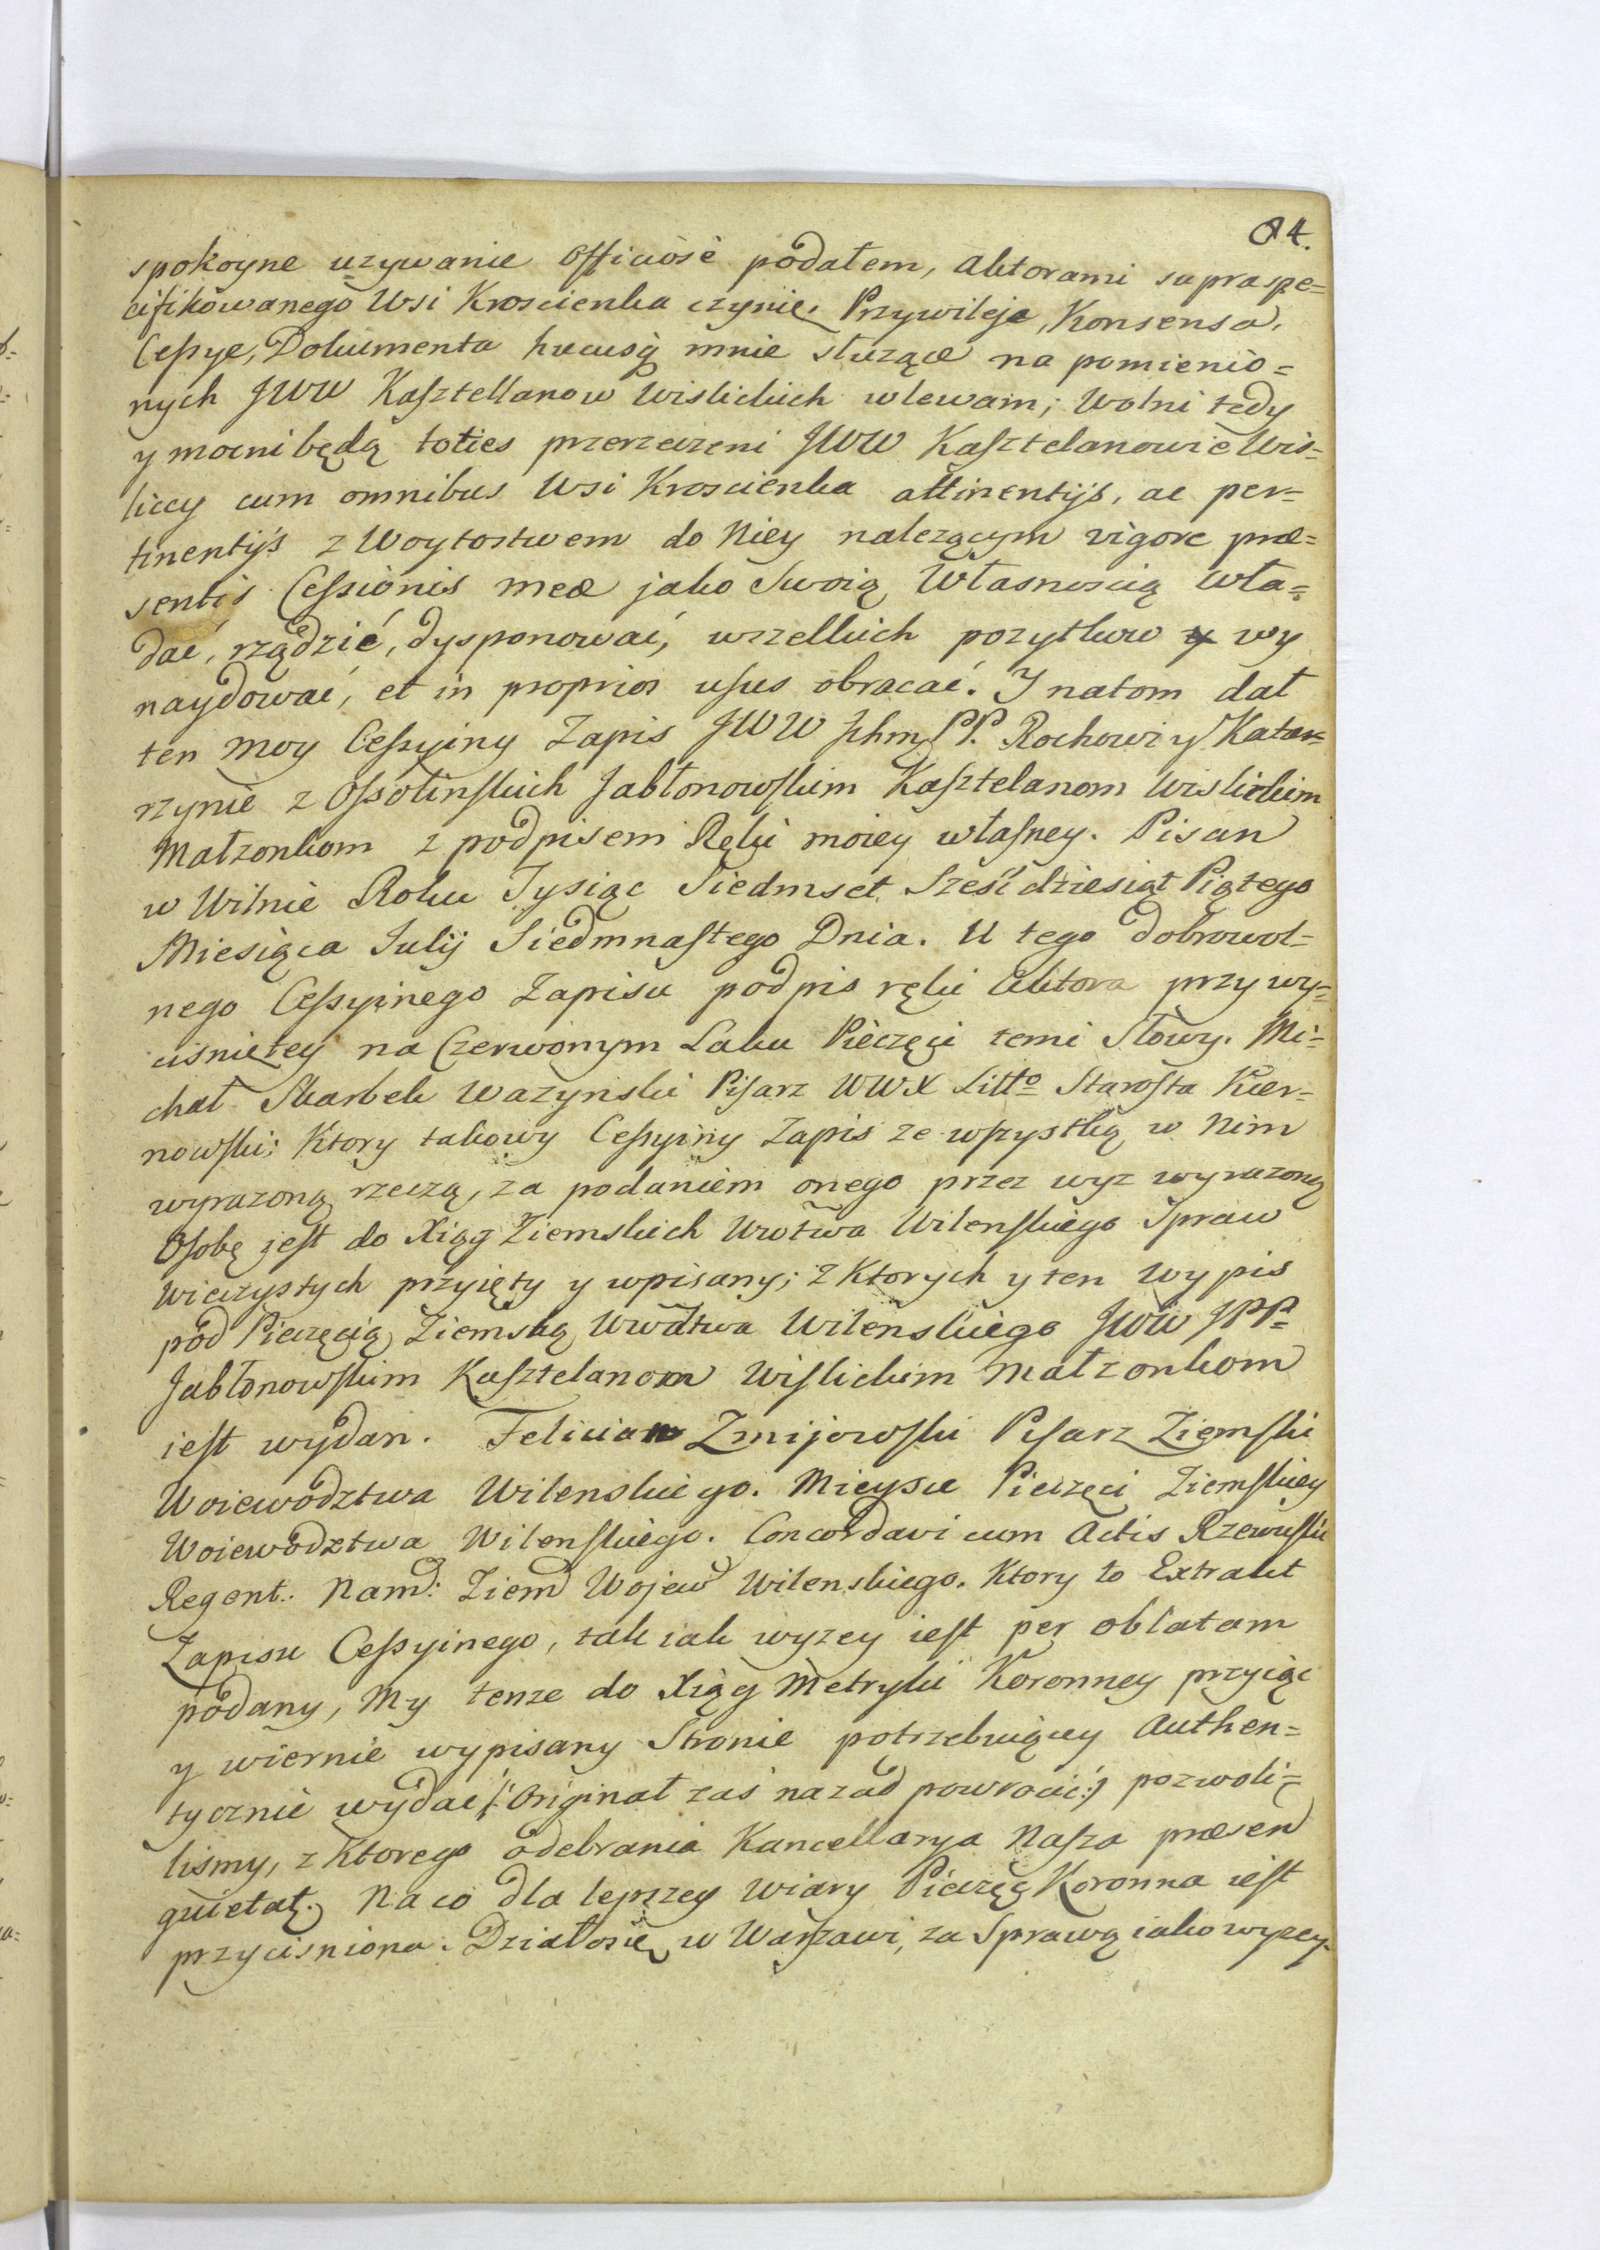 84.
spokoyne uzywanie officiose podałem, Aktorami supraspe=
cifikowanego Wsi Kroscienka czynię. Przywileje, Konsensa,
Cessye, Dokumenta hucusq mnie służące na pomienio=
nych JWW Kasztellanow Wislickich wlewam; Wolni tedy
y mocni będą toties przerzeczeni JWW Kasztelanowie Wis=
liccy cum omnibus Wsi Kroscienka attinentijs, ac per=
tinentijs z Woytostwem do Niey nalezącym vigore præ=
sentis Cessionis meæ jako Swoią Własnoscią wła=
dać, rządzić, dysponować, wszelkich pozytkow wy
naydować, et in proprios usus obracać. I natom dał
ten moy Cessyiny Zapis JWW Ichm PP. Rochowi y Kata=
rzynie z Ossolinskich Jabłonowskim Kasztelanom Wislickim
Małzonkom z podpisem Ręki moiey własney. Pisan
w Wilnie Roku Tysiąc Siedmset Sześćdziesiąt Piątego
Miesiąca Julij Siedmnastego Dnia. U tego dobrowol=
nego Cessyinego Zapisu podpis ręki Aktora przy wy=
cisnietey na Czerwonym Laku Pieczęci temi Słowy. Mi=
chał Skarbek Wazynski Pisarz WWX Litto Starosta Kier=
nowski: Ktory takowy Cessyiny Zapis ze wszystką w Nim
wyrazoną rzeczą, za podaniem onego przez wyz wyrazoną
Osobę jest do Xiąg Ziemskich Wwotwa Wilenskiego Spraw
Wieczystych przyięty y wpisany; z Ktorych y ten Wypis
pod Pieczęcią Ziemską Wwdtwa Wilenskiego JWW JPP
Jabłonowskim Kasztelanom Wislickim Małzonkom
iest wydan. Felician Zmijowski Pisarz Ziemski
Woiewodztwa Wilenskiego. Mieysce Pieczęci Ziemskiey
Woiewodztwa Wilenskiego. Concordavi cum Actis Rzewuski
Regent. Nam: Ziem Wojew Wilenskiego. Ktory to Extrakt
Zapisu Cessyinego, tak iak wyzey iest per oblatam
podany, My tenze do Xiąg Metryki Koronney przyiąc
y wiernie wypisany Stronie potrzebuiącey Authen=
tycznie wydać (: Originał zaś nazad powrocić :) pozwoli=
lismy, z Ktorego odebrania Kancellarya Nasza præsen
quietat. Na co dla lepszey Wiary Pieczęć Koronna iest
przycisniona. Działosię w Warszawi, za Sprawą iako wyzey.